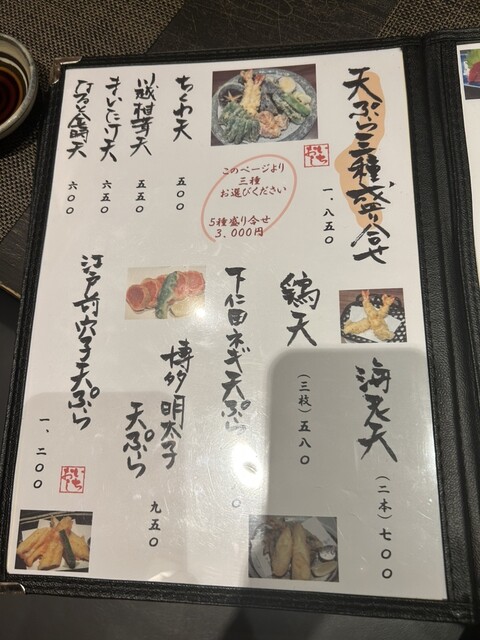 天ぷら三種盛り合せ
一、八五〇
いちおし
このページより
三種
お選びください
5種盛り合せ
3.000円
ちくわ天
五〇〇
五五〇
まいたけ天
六五〇
なると金時天
六〇〇
海老天
(二本)七〇〇
鶏天
(三枚)五八〇
下仁田ネギ天ぷら
博多明太子
天ぷら
九五〇
江戸前穴子天ぷら
一、二〇〇
いちおし